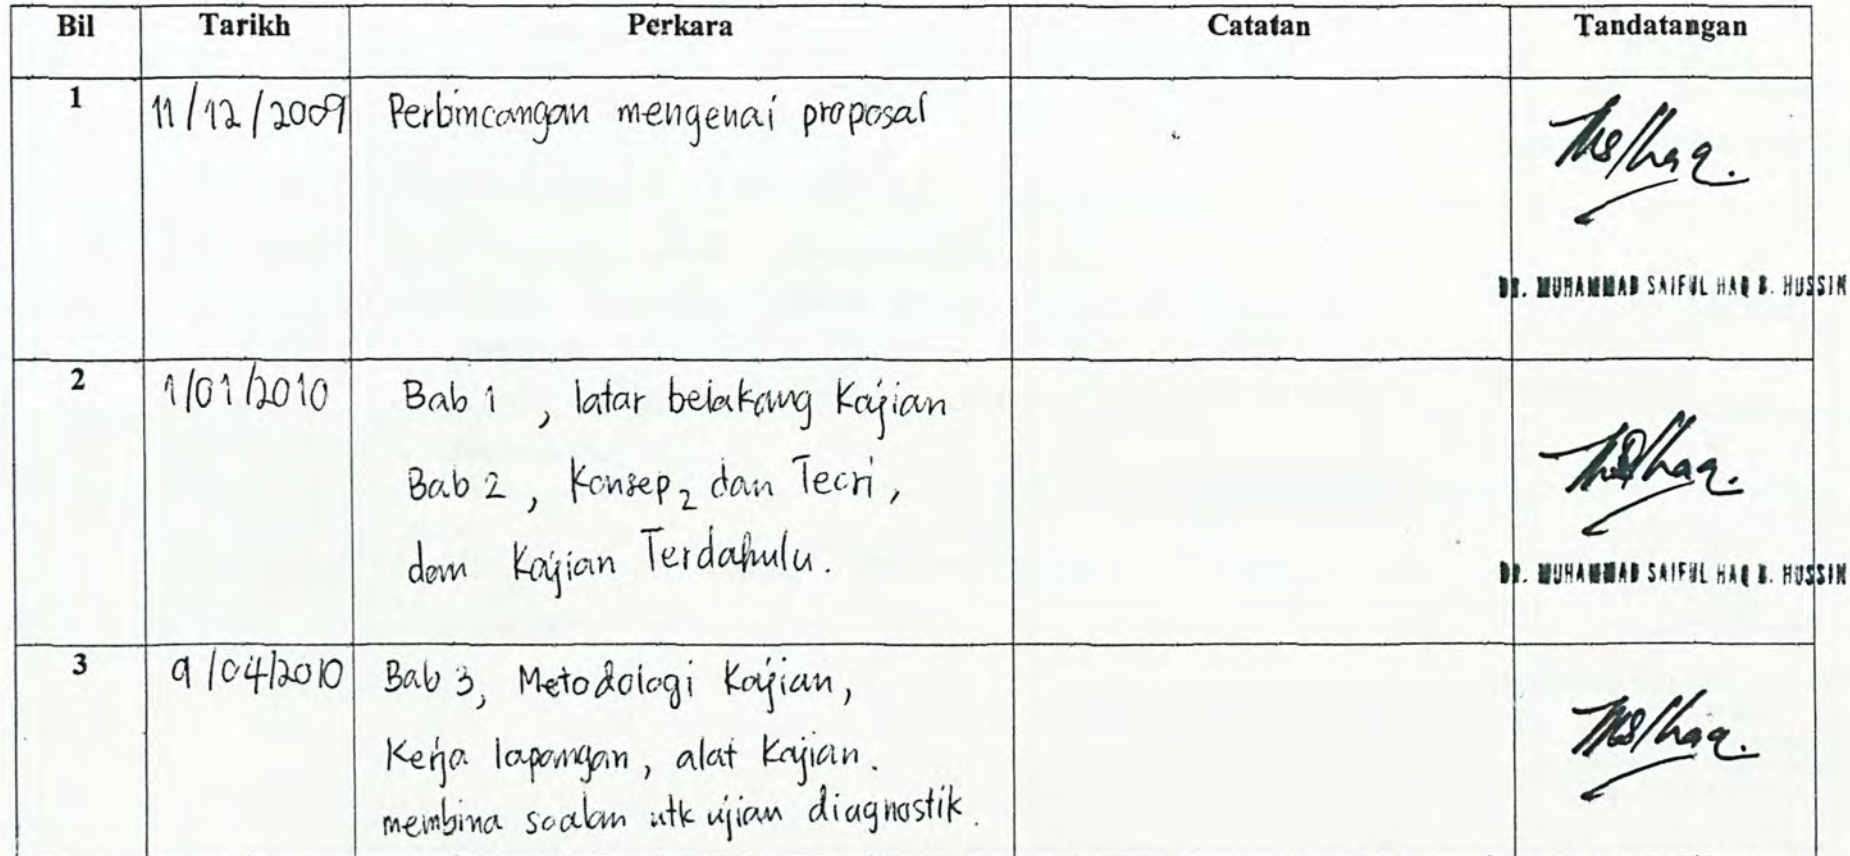 Bil Tarikh Perkara Catatan Tandatangan
1 11/12/2009 Perbincangan mengenai proposal
DR. MUHAMMAD SAIFUL HAQ B. HUSSIN
2 1/01/2010 Bab 1 , latar belakang Kajian
Bab 2 , Konsep2 dan Teori ,
dan Kajian Terdahulu.
DR. MUHAMMAD SAIFUL HAQ B. HUSSIN
3 9/04/2010 Bab 3, Metodologi Kajian,
Kerja lapangan, alat Kajian.
membina soalan utk ujian diagnostik.